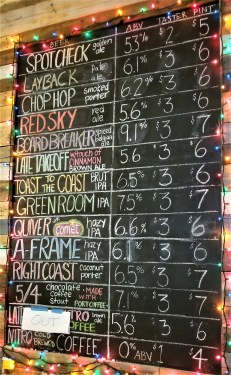 BEER ABV TASTER PINT
SPOT CHECK golden ale 5.3% $2 $5
LAYBACK pale ale 6.1% $3 $6
CHOP HOP smoked porter 6.2% $3 $6
RED SKY red ale 5.6% $3 $6
BOARD BREAKER 9.1% $3 $7
LATE TAKEOFF with touch of CINNAMON BROWN ALE 5.6 $3 $6
TOAST TO THE COAST BRUT IPA 6.5% $3 $6
GREEN ROOM IPA 7.5% $3 $7
QUIVER comet hazy IPA 6.6% $3 $6
A-FRAME hazy IPA 6.1% $3 $6
RIGHT COAST coconut porter 6.5% $3 $7
5/4 chocolate coffee stout MADE WITH PORT COFFEE 7.1% $3 $7
NITRO brown ale COFFEE 5.6% $3 $6
OUT
NITRO COLD BREWED COFFEE 0% ABV $1 $4